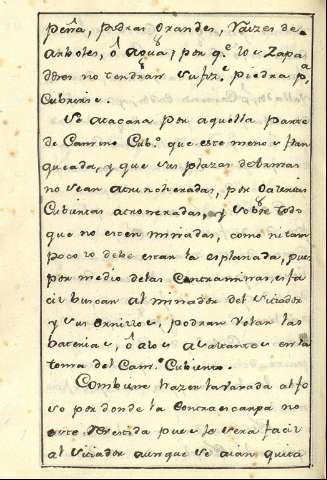 peña, pedras Grandes, Raizes de
Arboles, ô agua; por q.e los Zapa
dores no tendran sufiz.te piedra p.a
Cubrirse.
Se atacara por aquella parte
de Camino Cub.to que este menos flan
queada, y que sus plazas de armas
no sean atrincheradas, por baterias
Cubiertas acromeradas, y sobre todo
que no esten minadas, como ni tam
poco lo debe estar la esplanada, pues
por medio delas Contraminas, es fa
cil buscar al minador del Sitiador
y sus ornillos, podran volar las
baterias, ô alos asaltantes en la
toma del Cam.o Cubierto.
Combiene hazer la vajada al fo
so por donde la Contraescarpa no
este Rebestida pues le sera facil
al Sitiador aunque se aian quita